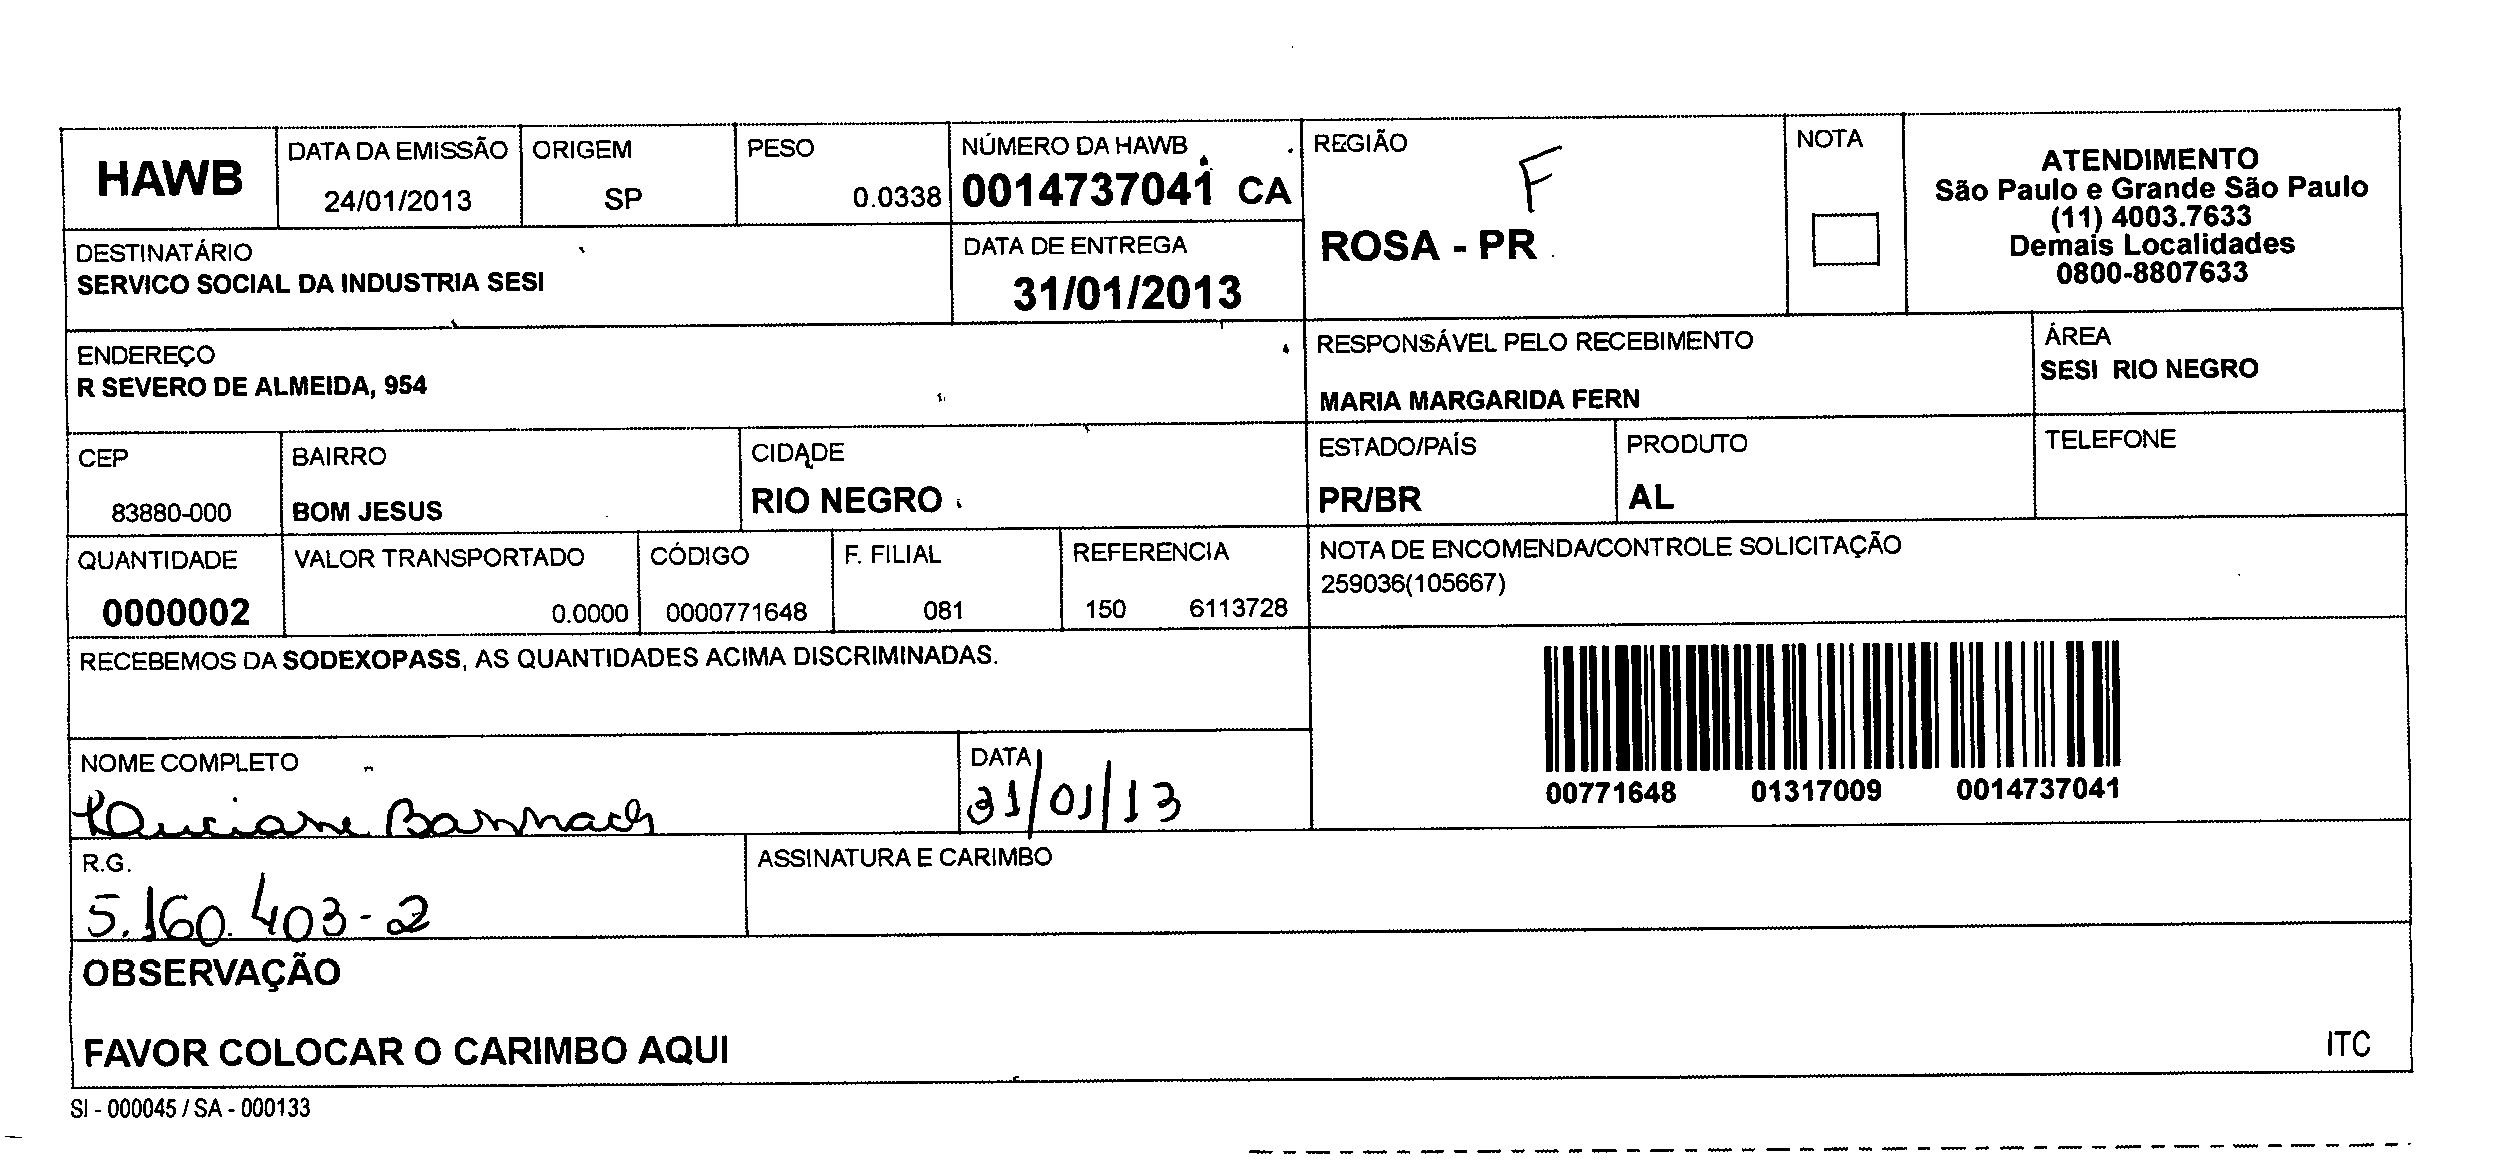 HAWB
DATA DA EMISSÃO
24/01/2013
ORIGEM
SP
PESO
0.0338
NÚMERO DA HAWB
0014737041 CA
REGIÃO
F
ROSA - PR
NOTA
ATENDIMENTO
São Paulo e Grande São Paulo
(11) 4003.7633
Demais Localidades
0800-8807633
DESTINATÁRIO
SERVICO SOCIAL DA INDUSTRIA SESI
DATA DE ENTREGA
31/01/2013
ENDEREÇO
R SEVERO DE ALMEIDA, 954
RESPONSÁVEL PELO RECEBIMENTO
MARIA MARGARIDA FERN
ÁREA
SESI RIO NEGRO
CEP
83880-000
BAIRRO
BOM JESUS
CIDADE
RIO NEGRO
ESTADO/PAÍS
PR/BR
PRODUTO
AL
TELEFONE
QUANTIDADE
0000002
VALOR TRANSPORTADO
0.0000
CÓDIGO
0000771648
F. FILIAL
081
REFERENCIA
150 6113728
NOTA DE ENCOMENDA/CONTROLE SOLICITAÇÃO
259036(105667)
RECEBEMOS DA SODEXOPASS, AS QUANTIDADES ACIMA DISCRIMINADAS.
00771648 01317009 0014737041
NOME COMPLETO
DATA
31/01/13
R.G.
5.160.403-2
ASSINATURA E CARIMBO
OBSERVAÇÃO
FAVOR COLOCAR O CARIMBO AQUI
ITC
SI - 000045 / SA - 000133